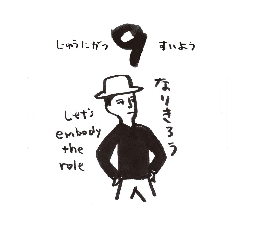 じゅうにがつ 9 すいよう
なりきろう
Let's
embody
the
role